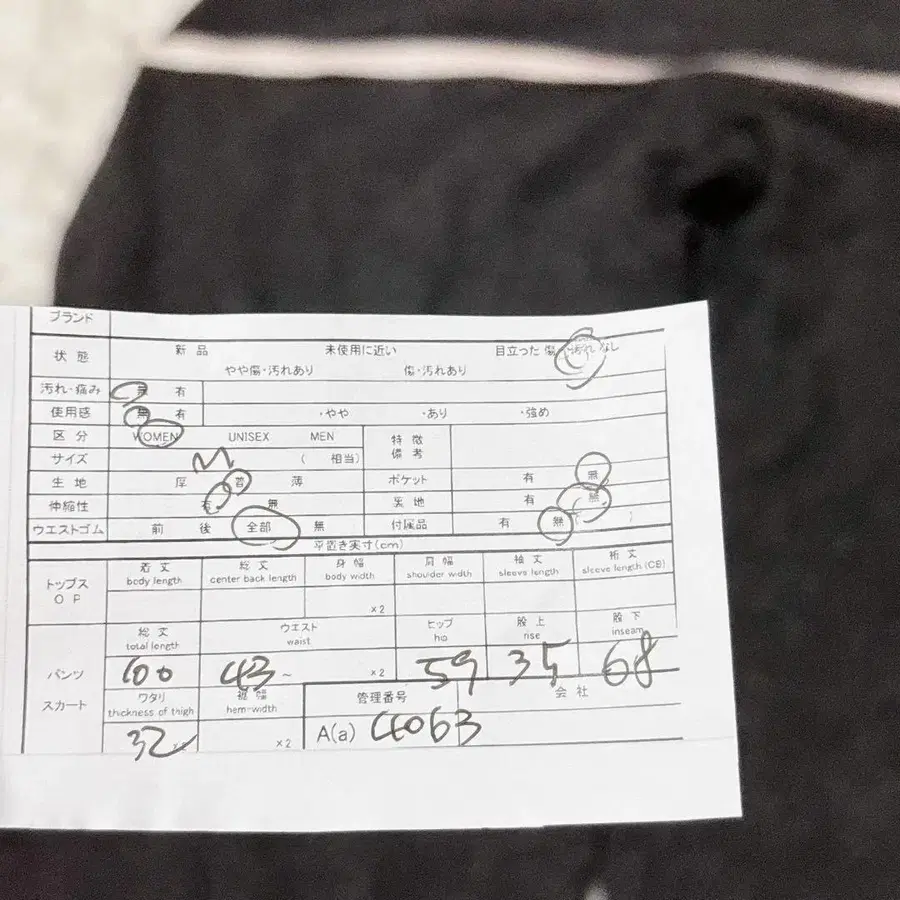 ブランド
状態 新品 未使用に近い 目立った傷・汚れなし
やや傷・汚れあり 傷・汚れあり
汚れ・痛み 無 有
使用感 無 有 ・やや ・あり ・強め
区分 WOMEN UNISEX MEN 特徴
備考
サイズ M ( 相当)
生地 厚 普 薄 ポケット 有 無
伸縮性 有 無 裏地 有 無
ウエストゴム 前 後 全部 無 付属品 有 無( )
平置き実寸(cm)
トップス
OP
着丈 総丈 身幅 肩幅 袖丈 裄丈
body length center back length body width shoulder width sleeve length sleeve length (CB)
×2
パンツ
スカート
総丈 ウエスト ヒップ 股上 股下
total length waist hip rise inseam
100 43 ~ ×2 59 35 68
ワタリ 裾幅 管理番号 会社
thickness of thigh hem-width
32 ×2 ×2 A(a) 4063